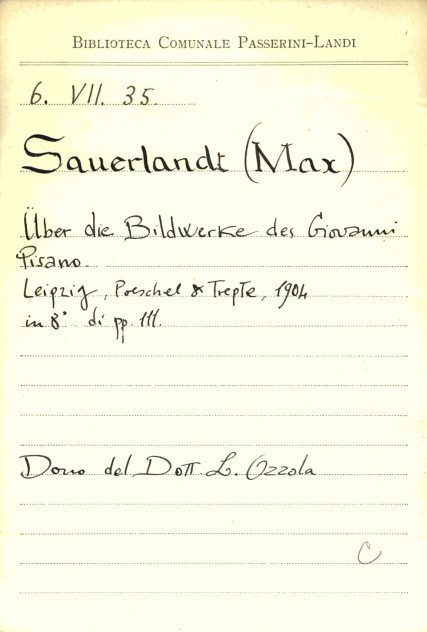 Biblioteca Comunale Passerini-Landi
6. VII. 35.
Sauerlandt (Max)
Über die Bildwerke des Giovanni
Pisano.
Leipzig, Poeschel & Trepte, 1904
in 8° di pp. 111.
Dono del Dott. L. Ozzola
C